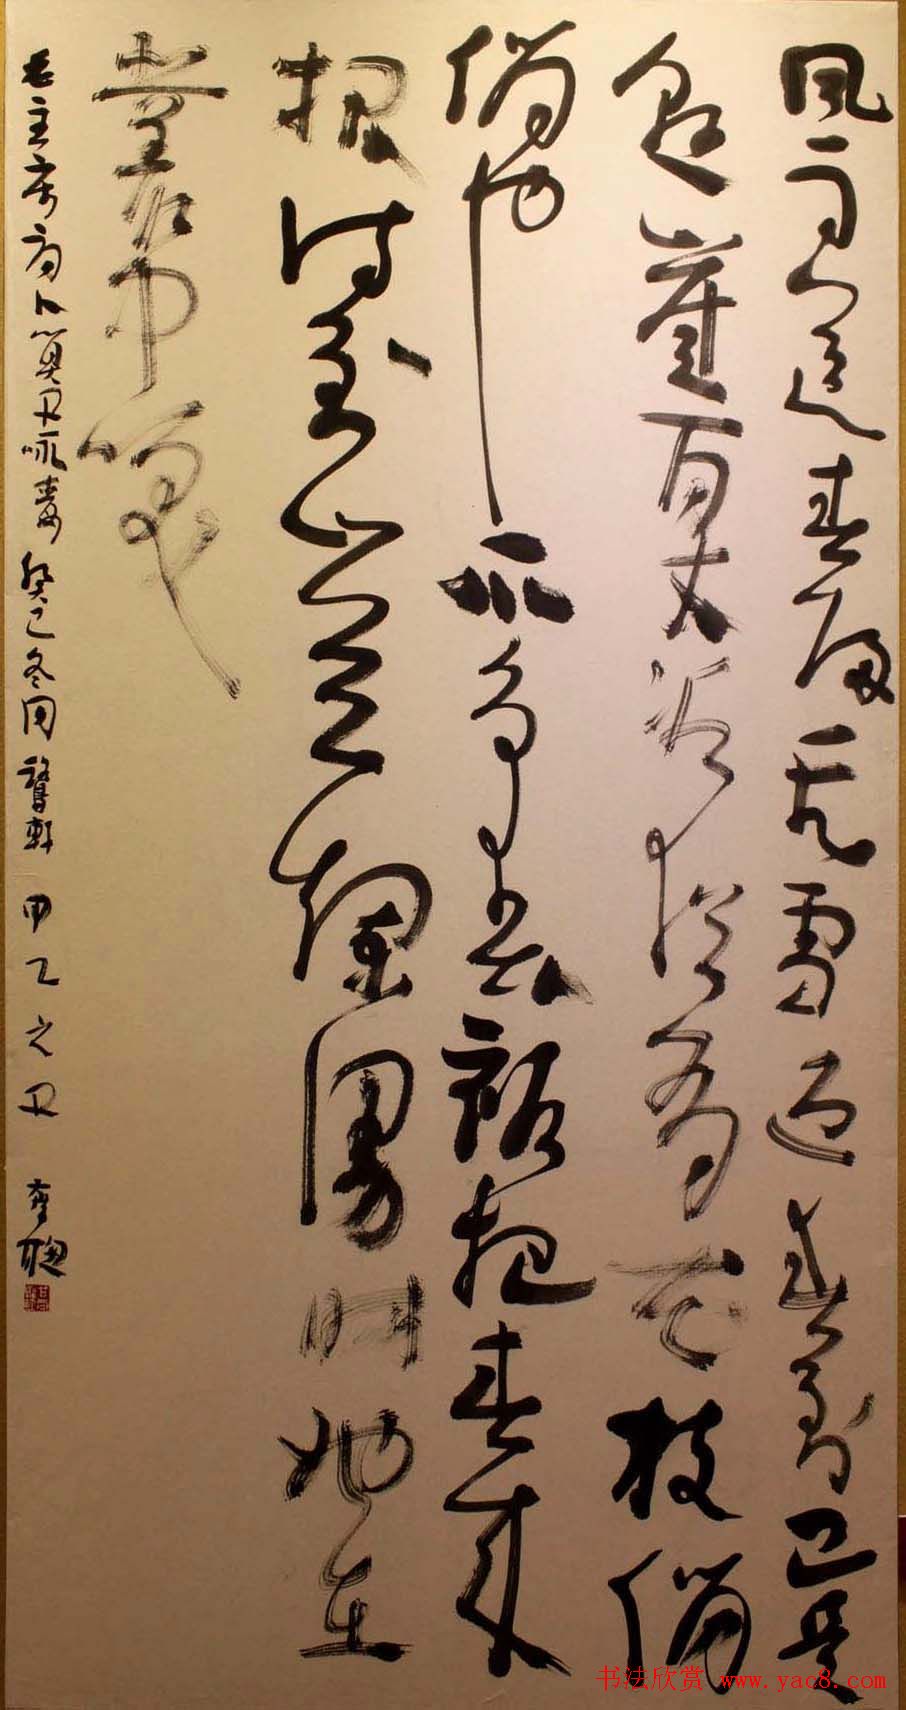 風雨送春歸飛雪迎春到已是
懸崖百丈冰猶有花枝俏
俏也不爭春祇把春來
报待到山花爛漫時她在
叢中笑
毛主席詞卜算子咏梅 癸巳冬月 軒 甲乙之子 聰
书法欣赏 www.yac8.com